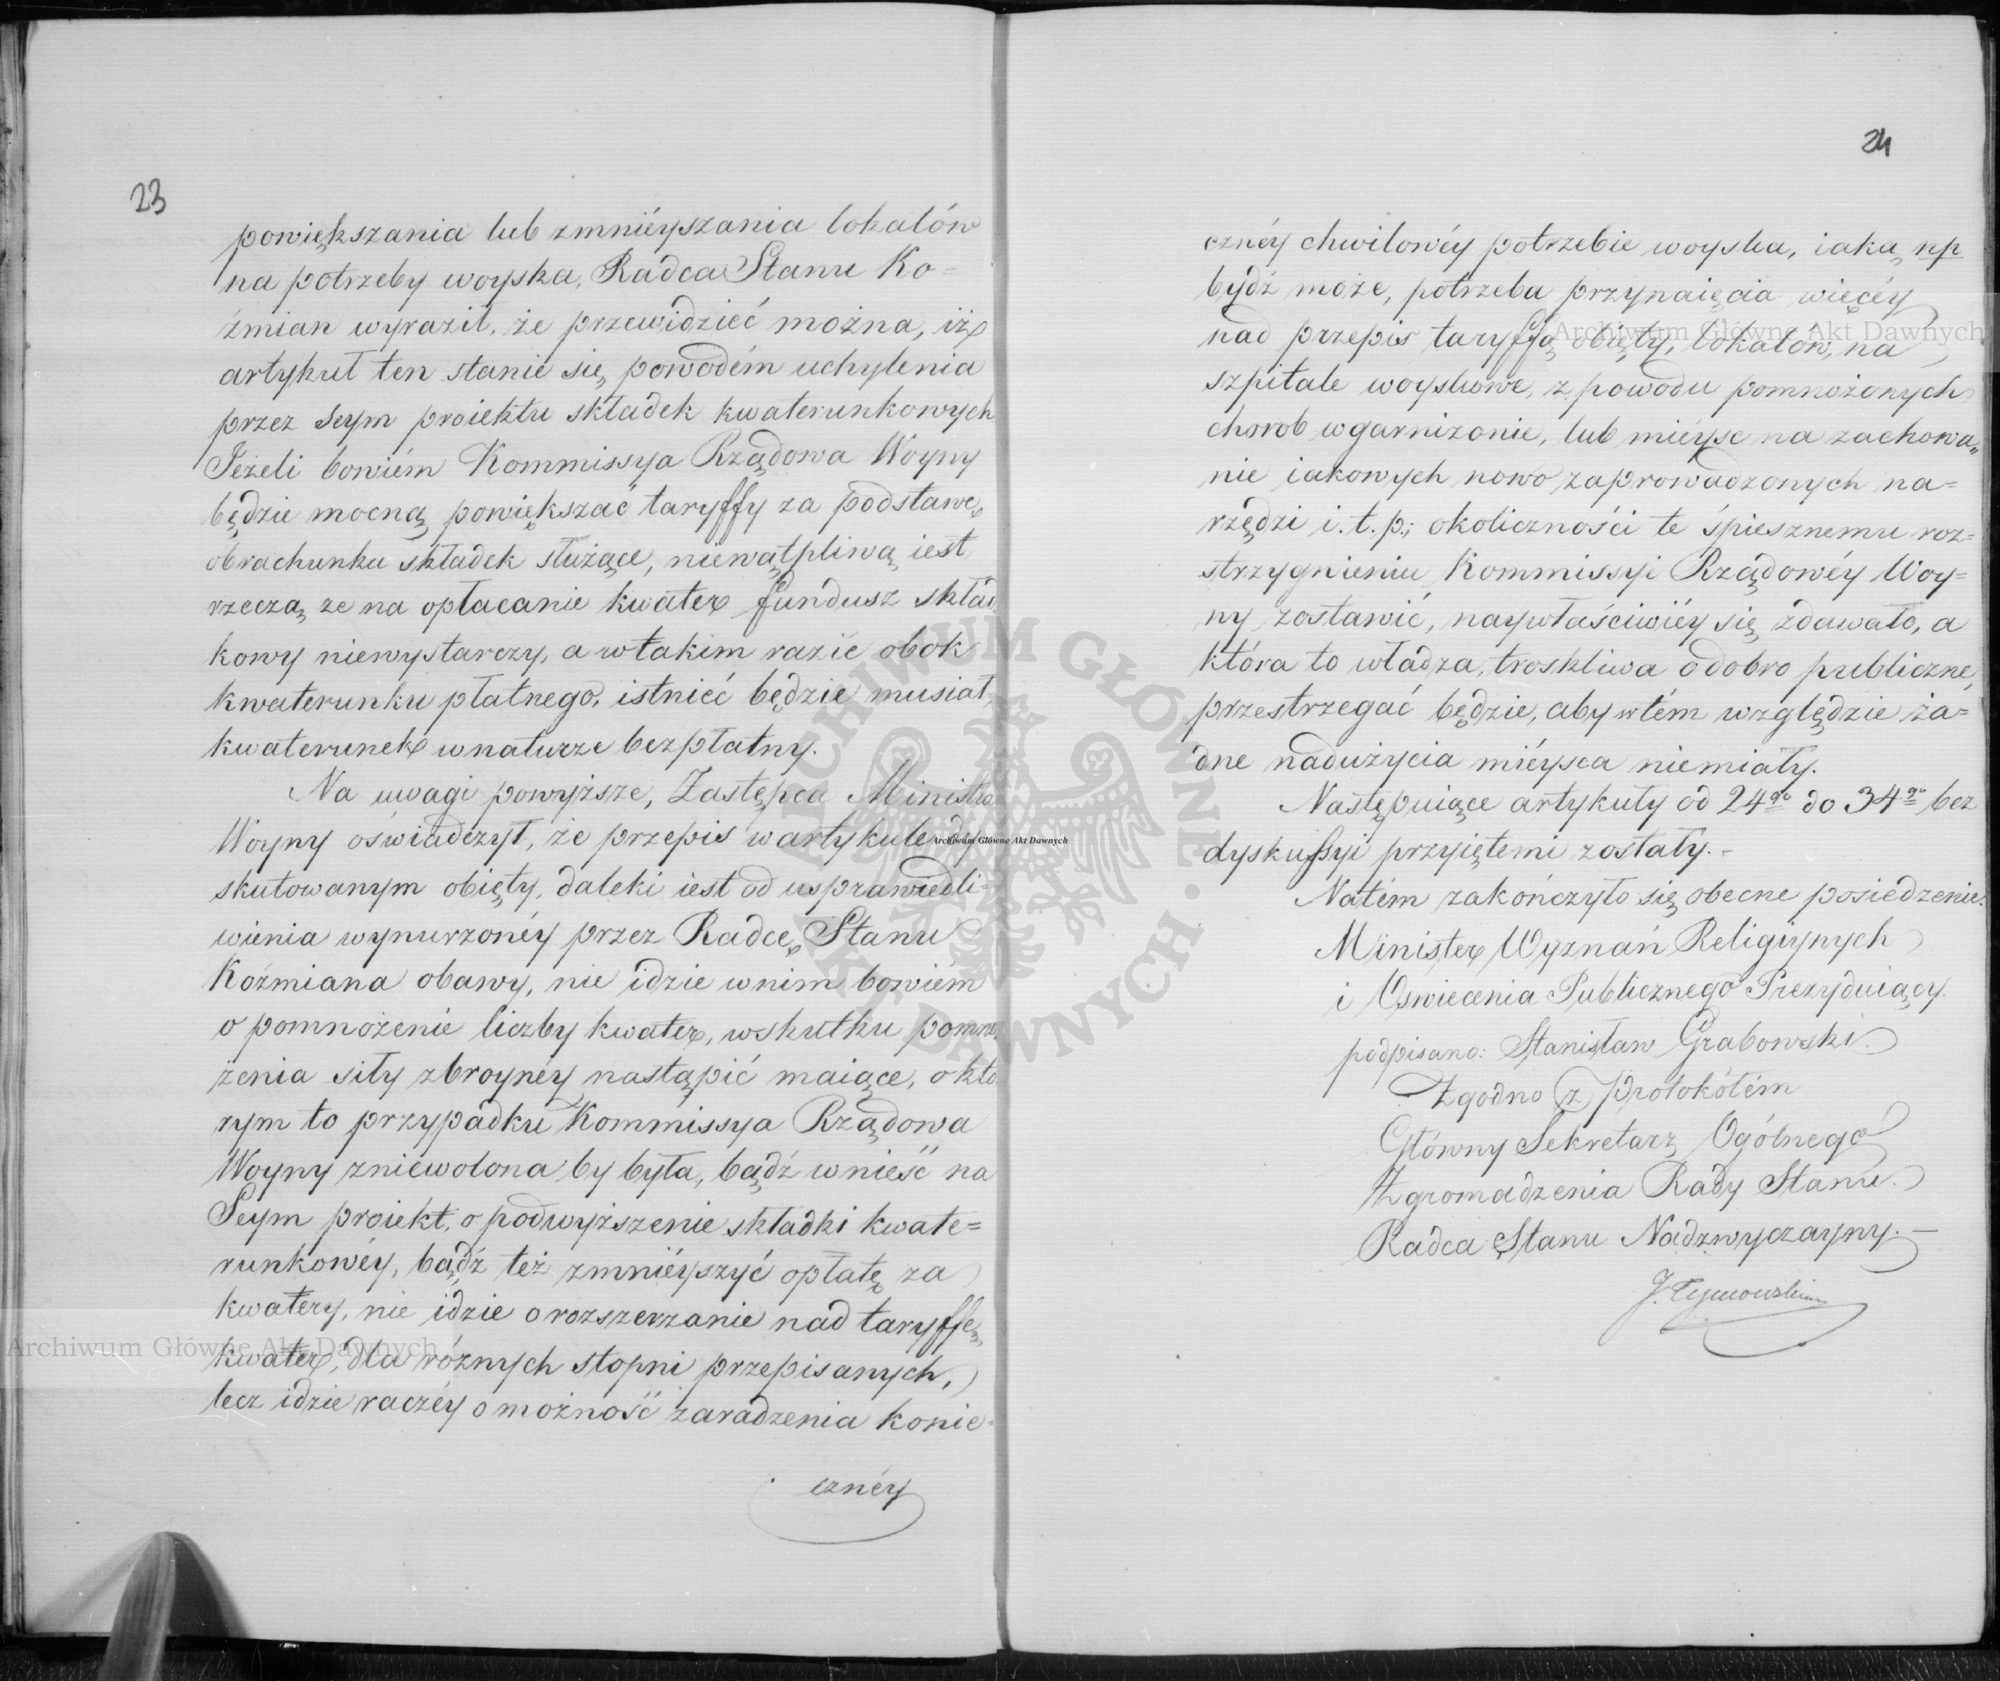 23
powiększania lub zmniéyszania lokalów
na potrzeby woyska, Radca Stanu Ko=
źmian wyraził, że przewidzieć można, iż
artykuł ten stanie się powodém uchylenia
przez Seym proiektu składek kwaterunkowych
Jeżeli bowiém Kommissya Rządowa Woyny
będzie mocną powiększać taryffy za podstawę
obrachunku składek służące, niewątpliwą iest
rzeczą że na opłacanie kwater fundusz skład
kowy niewystarczy, a wtakim razie obok
kwaterunku płatnego, istnieć będzie musiał
kwaterunek wnaturze bezpłatny.
Na uwagi powyższe, Zastępca Ministra
Woyny oświadczył, że przepis wartykule dy
skutowanym obięty, daleki iest od usprawiedli-
wienia wynurzonéy przez Radcę Stanu
Koźmiana obawy, nie idzie wnim bowiém
o pomnożenie liczby kwater, wskutku pomno
żenia siły zbroynéy nastąpić maiące, o któ
rym to przypadku Kommissya Rządowa
Woyny zniewolona by była, bądź wnieść na
Seym proiékt, o podwyższenie składki kwate=
runkowéy, bądź też zmniéyszyć opłatę za
kwatery, nie idzie o rozszerzanie nad taryffę
kwater, dla różnych stopni przepisanych,
lecz idzie raczéy o możność zaradzenia konie=
cznéy
24
cznéy chwilowéy potrzebie woyska, iaką np
bydź może, potrzeba przynaięcia więcéy
nad przepis taryffą obięty, lokalów, na
szpitale woyskowe, z powodu pomnożonych
chorob wgarnizonie, lub miéysc na zachowa„
nie iakowych nowo zaprowadzonych na=
rzędzi i. t. p.; okoliczności te śpiesznemu roz=
strzygnieniu Kommissyi Rządowéy Woy=
ny zostawić, naywłaściwiéy się zdawało, a
która to władza, troskliwa o dobro publiczne,
przestrzegać będzie, aby wtém względzie ża=
dne nadużycia miéysca niemiały.
Następuiące artykuły od 24go do 34go bez
dyskussyi przyiętemi zostały.-
Natém zakończyło się obecne posiedzenie.
Minister Wyznań Religiynych
i Oswiecenia Publicznego Prezyduiący.
podpisano: Stanisław Grabowski.
Zgodno z protokółém
Główny Sekretarz Ogólnego
Zgromadzenia Rady Stanu.
Radca Stanu Nadzwyczayny.-
J. Tymowski
Archiwum Główne Akt Dawnych
Archiwum Główne Akt Dawnych
Archiwum Główne Akt Dawnych
ARCHIWUM GŁÓWNE AKT DAWNYCH